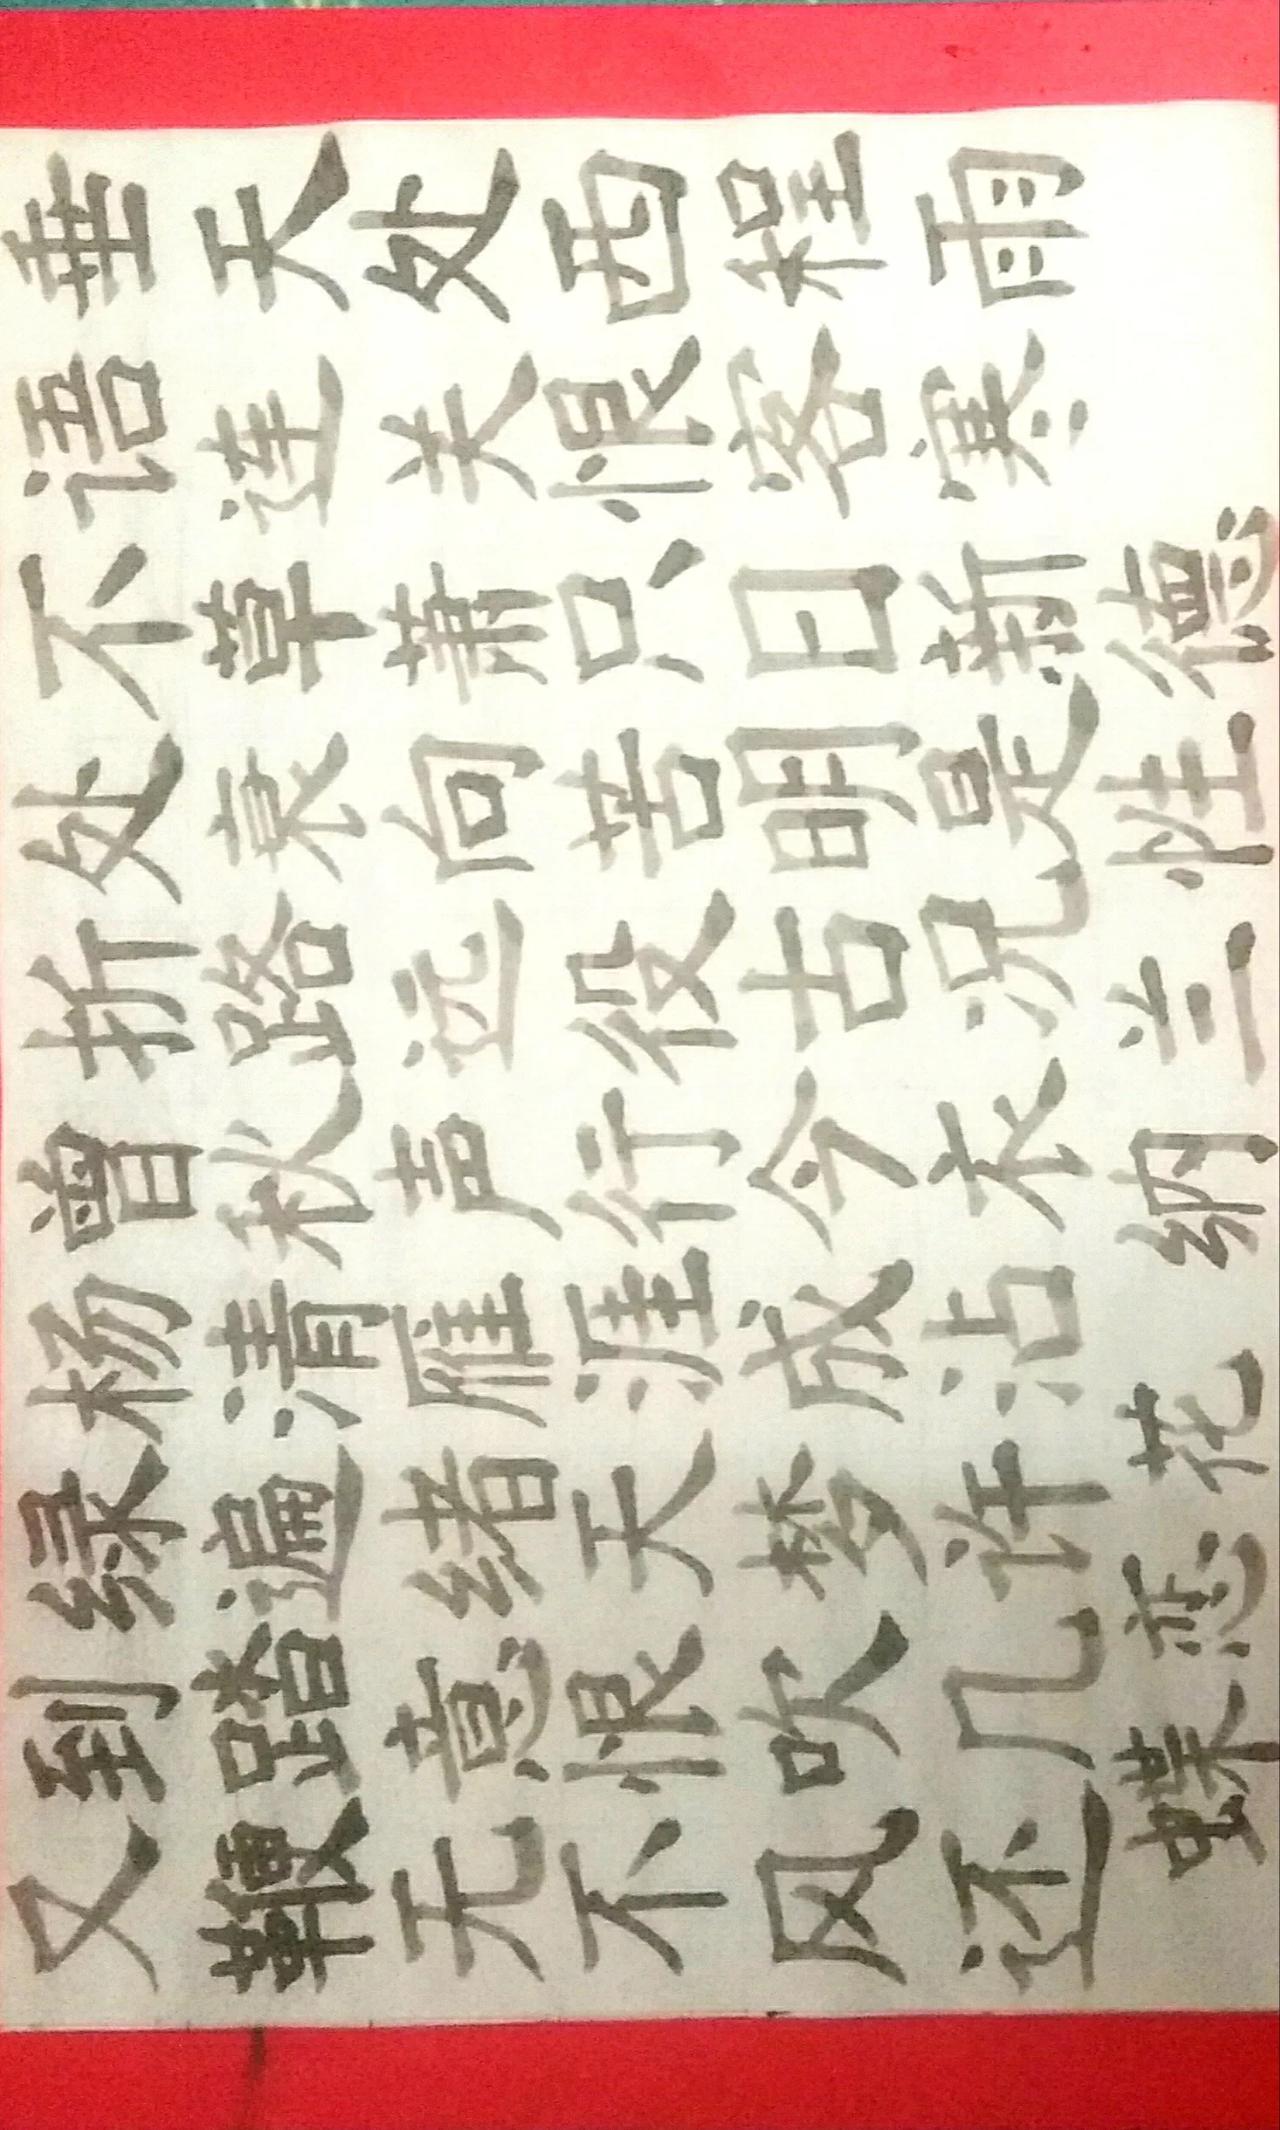 又到绿杨曾折处不语垂
鞭踏遍清秋路衰草连天
无意绪雁声远向萧关处
不恨天涯行役苦只恨西
风吹梦成今古明日客程
还几许沾衣况是新寒雨
蝶恋花 纳兰性德